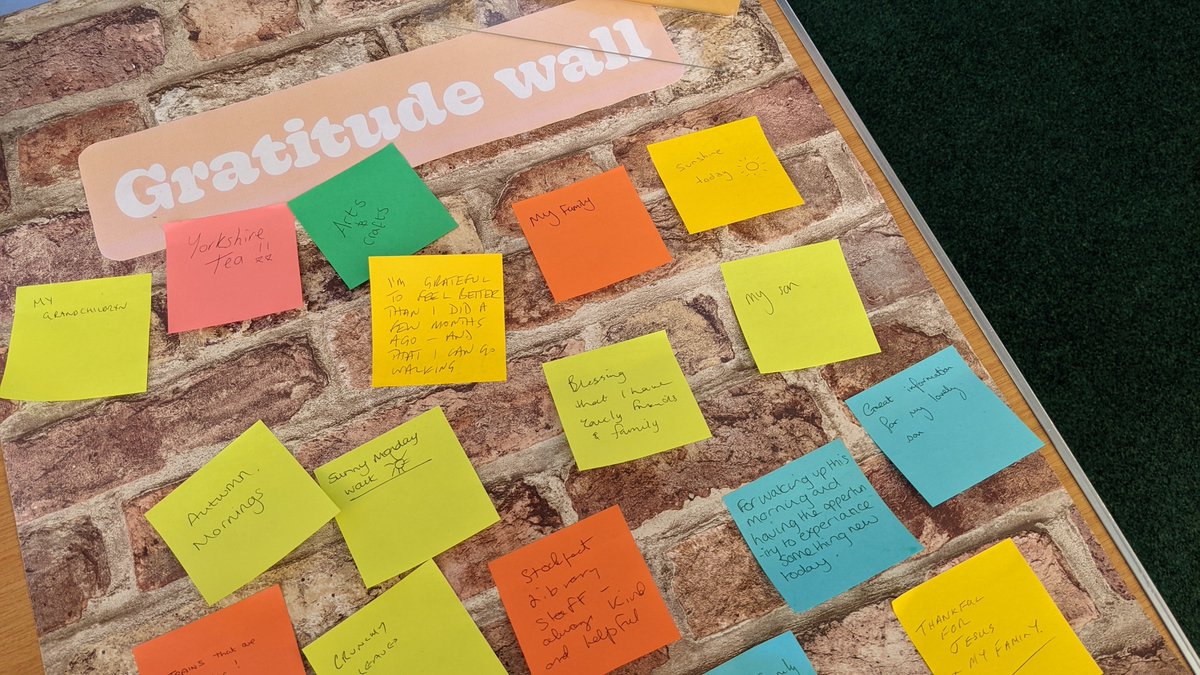 Gratitude wall
Sunshine
today
My Family
Arts
&
crafts
Yorkshire
Tea !!
xx
MY
GRANDCHILDREN
I'M GRATEFUL
TO FEEL BETTER
THAN I DID A
FEW MONTHS
AGO - AND
THAT I CAN GO
WALKING
My son
Blessing
that I have
lovely friends
& family
Great information
for my lovely
son
Autumn.
Mornings
Sunny Monday
walk
For waking up this
morning and
having the opportun
-ity to experiance
something new
today.
Stockport
Library
Staff -
always kind
and helpful
TRAINS THAT ARE
!
CRUNCHY
LEAVES
THANKFUL
FOR
JESUS
MY FAMILY.